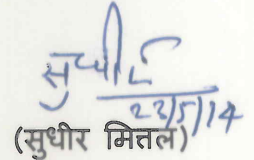 सुधीर
23/5/14
(सुधीर मित्तल)